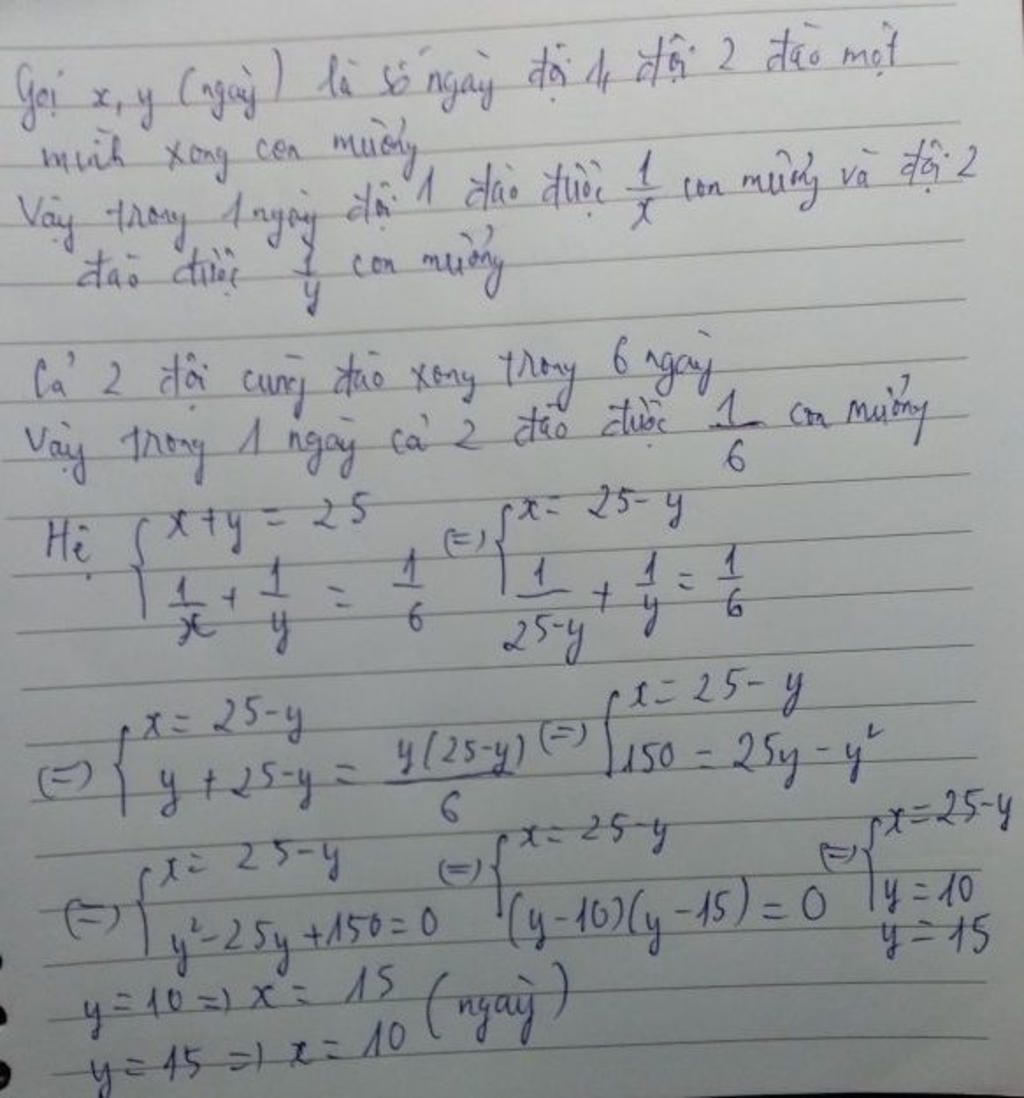 Gọi x, y (ngày) là số ngày đội 1, đội 2 đào một
mình xong con mương
Vậy trong 1 ngày đội 1 đào được 1/x con mương và đội 2
đào được 1/y con mương
Cả 2 đội cùng đào xong trong 6 ngày
Vậy trong 1 ngày cả 2 đào được 1/6 con mương
Hệ { x+y = 25 ; 1/x + 1/y = 1/6 (=) { x = 25-y ; 1/(25-y) + 1/y = 1/6
(=) { x = 25-y ; y + 25-y = y(25-y)/6 (=) { x = 25-y ; 150 = 25y - y²
(=) { x = 25-y ; y² - 25y + 150 = 0 (=) { x = 25-y ; (y-10)(y-15) = 0 (=) { x = 25-y ; y = 10 ; y = 15
y = 10 => x = 15 (ngày)
y = 15 => x = 10